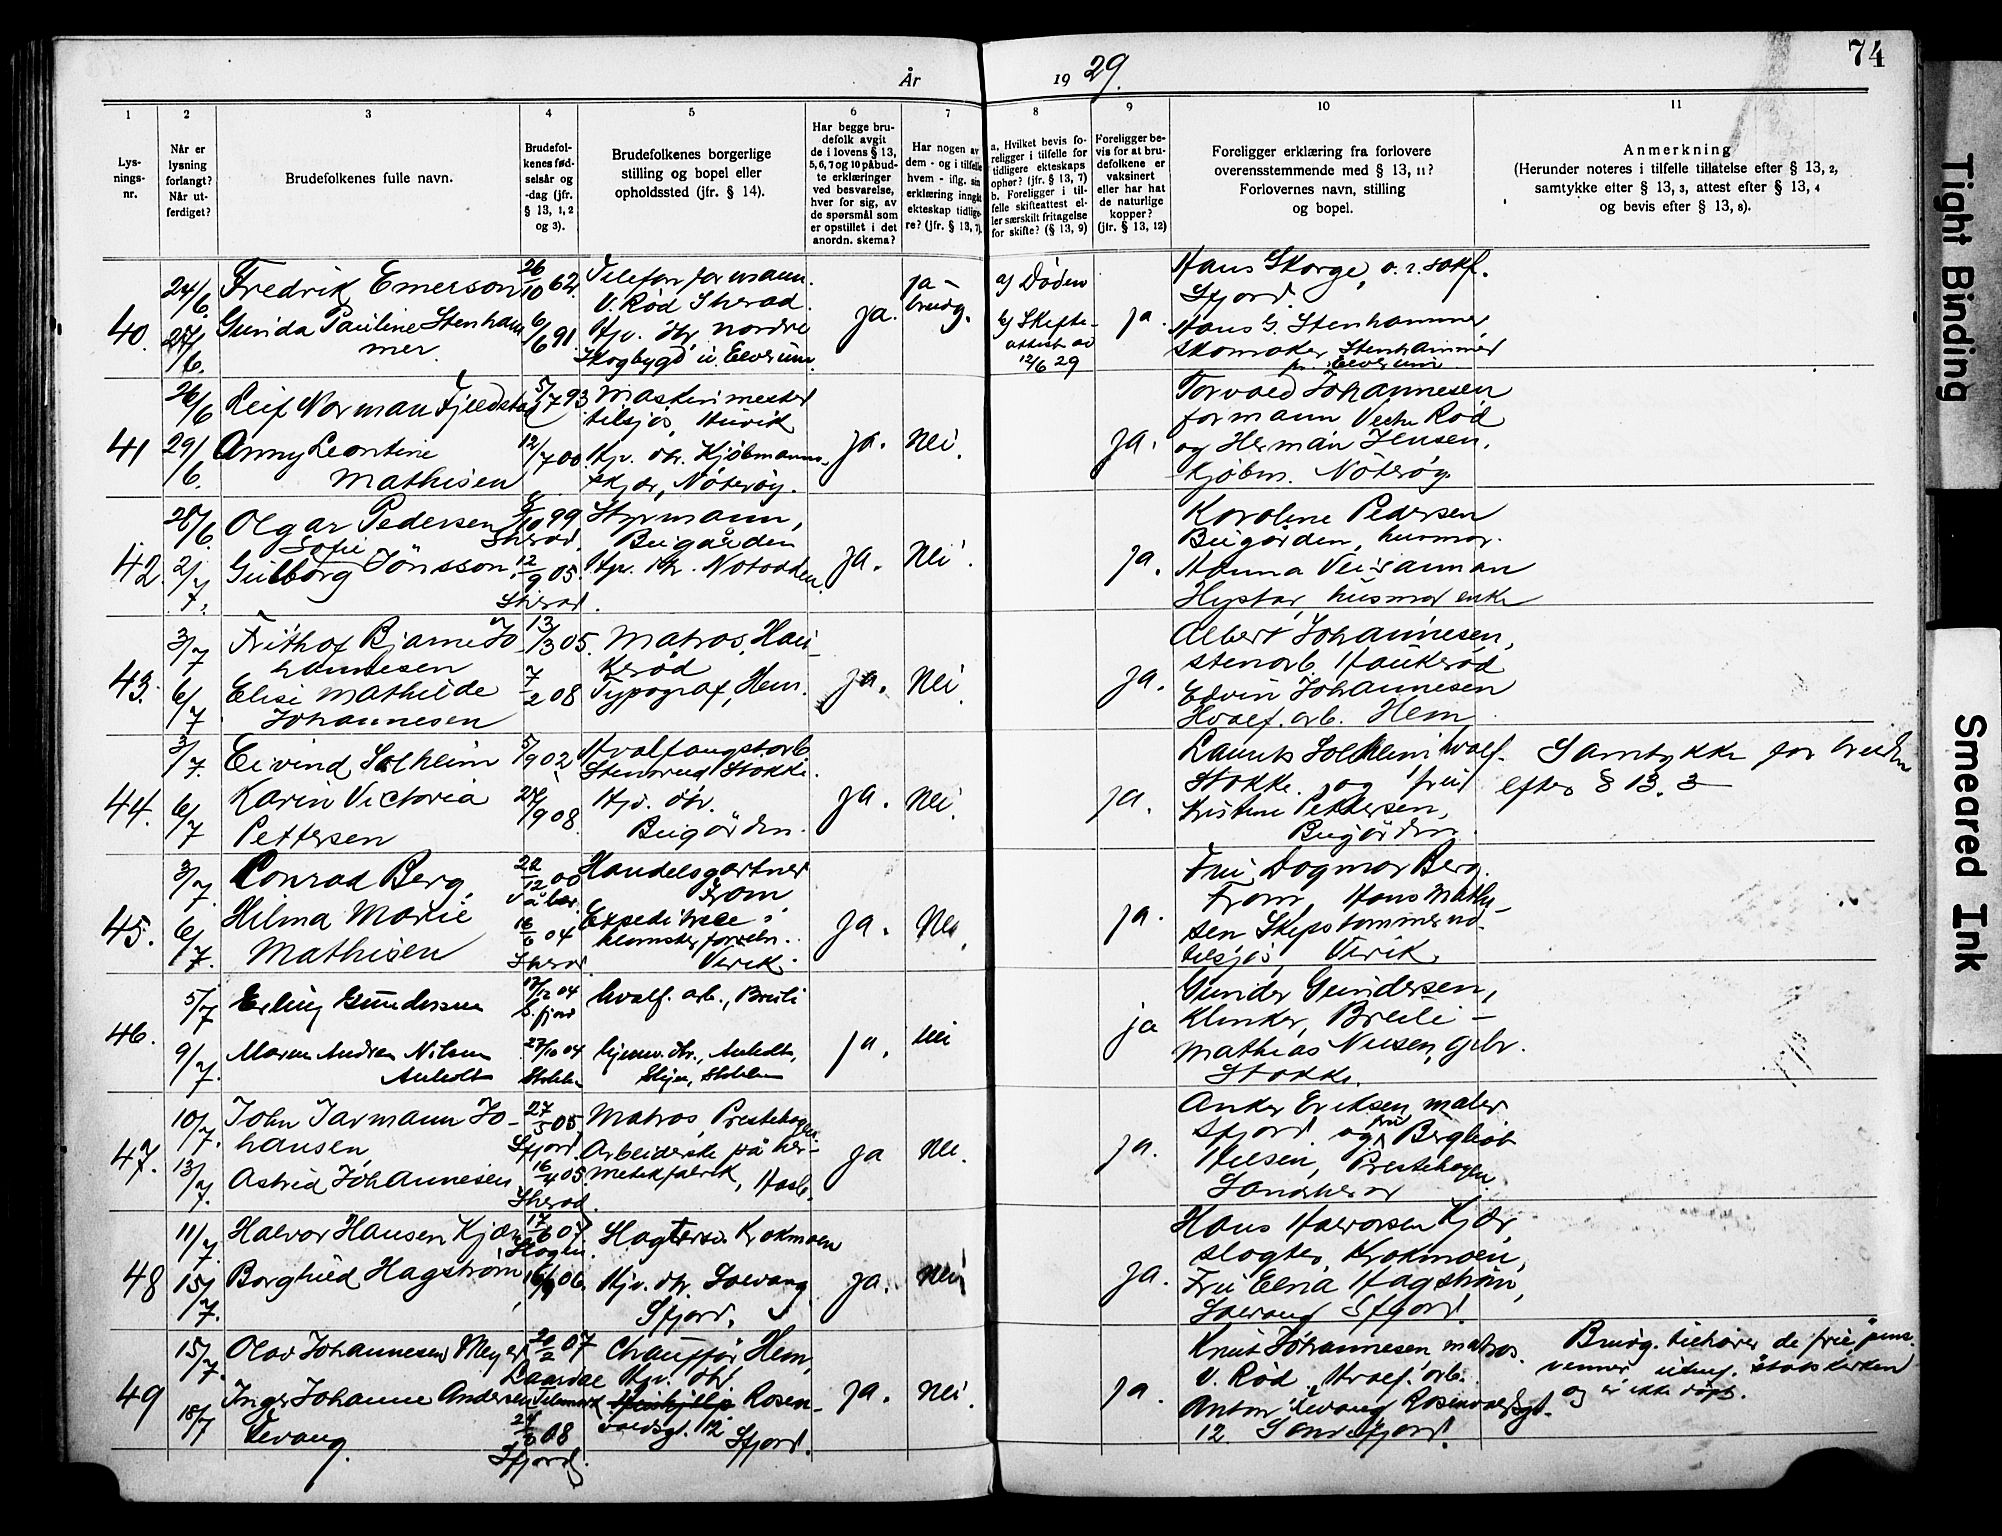 74
År
1929.
1
2
3
4
5
6
7
8
9
10
11
Lys-
nings-
nr.
Når er
lysning
forlangt?
Når ut-
ferdiget?
Brudefolkenes fulle navn.
Brudefol-
kenes fød-
selsår og
-dag (jfr.
§ 13, 1, 2
og 3).
Brudefolkenes borgerlige
stilling og bopel eller
opholdssted (jfr. § 14).
Har begge bru-
defolk avgit
de i lovens § 13,
5, 6, 7 og 10 påbud-
te erklæringer
ved besvarelse,
hver for sig, av
de spørsmål som
er opstillet i det
anordn. skema?
Har nogen av
dem - og i tilfelle
hvem - iflg. sin
erklæring inngått
ekteskap tidlige-
re? (jfr. § 13, 7).
a. Hvilket bevis fo-
religger i tilfelle for
tidligere ekteskaps
ophør? (jfr. § 13, 7)
b. Foreligger i til-
felle skifteattest el-
ler særskilt fritagelse
for skifte? (§ 13, 9)
Foreligger be-
vis for at bru-
defolkene er
vaksinert
eller har hat
de naturlige
kopper?
(jfr. § 13, 12)
Foreligger erklæring fra forlovere
overensstemmende med § 13, 11?
Forlovernes navn, stilling
og bopel.
Anmerkning
(Herunder noteres i tilfelle tillatelse efter § 13, 2,
samtykke efter § 13, 3, attest efter § 13, 4
og bevis efter § 13, 8).
40.
24/6.
27/6.
Fredrik Emerson
Gunda Pauline Stenham
mer
26/10 62.
6/6 91.
Telefonformann.
V. Rød Sherad.
Hjv. dtr. nordre
Skogbygd i Elverum.
ja.
ja -
brudg.
a) Døden
b) Skifte-
attest av
12/6 29
ja.
Hans Skorge, o.r.sakf.
Sfjord.
Hans G. Stenhammer,
skomaker Stenhammer
pr. Elverum
41
26/6
29/6.
Leif Norman Fjeldstad
Anny Leontine
Mathisen
5/7 93
12/7 00.
Maskinmester
tilsjøs, Huvik
Hjv. dtr. Kjøbmann-
skjær, Nøterøy.
ja.
Nei.
ja.
Torvald Johannesen
formann Vestre Rød
og Herman Jensen,
Kjøbm. Nøterøy.
42.
28/6.
2/7.
Olgar Pedersen
Sofie
Gulborg Jönsson.
6/10 99
Sherad.
12/9 05.
Sherad.
Styrmann,
Bugården
Hjv. dtr. Notodden.
ja.
Nei.
ja.
Karoline Pedersen
Bugården, husmor.
Hanna
Hystad, husmor enke
43.
3/7
6/7
Frithof Bjarne Jo-
hannesen
Elise Mathilde
Johannesen
13/3 05.
7/2 08
Matros, Hau-
kerød
Typograf, Hem.
ja.
Nei.
ja.
Albert Johannesen,
stenarb. Haukerød
Edvin Johannesen
Hvalf. arb. Hem
44.
3/7.
6/7
Eivind Solheim
Karin Victoria
Pettersen
5/9 02
24/9 08.
Hvalfangstarb.
Stensrud Stokke.
Hjv. dtr.
Bugården.
ja.
Nei.
ja.
Laurits Solheim hvalf.
Stokke. og fru
Kristine Pettersen,
Bugården.
Samtykke for bruden
efter § 13. 3
45.
3/7.
6/7.
Conrad Berg,
Hilma Marie
Mathisen
22/12 00
Våler.
16/6 04
Sherad.
Handelsgartner
From
Expeditrise i
blomsterforretn.
Virik.
ja.
Nei.
ja.
Fru Dagmar Berg.
From, Hans Mathi-
sen Skipstømmermd.
tilsjøs, Virik.
46.
5/7
9/7.
Erling Gundersen
Maren Andrea Nilsen
Anholt
17/12 04
S.fjord
27/10 04
Stokke
hvalf. arb., Breili
hjemv. dtr., Anholt,
Skjee, Stokke
ja.
nei
ja
Gunder Gundersen,
Klinker, Breili -
Mathias Nilsen, gbr.
Stokke.
47.
10/7.
13/7.
John Jarmann Jo-
hansen,
Astrid Johannesen
27/5 05.
Sfjord.
16/4 05
Sherad.
Matros Prestehagen.
Arbeiderske på her-
metikfabrik, Hasle.
ja
Nei.
ja.
Anker Eriksen maler
Sfjord. og fru Bergliot
Nilsen, Prestehagen.
Sandeherad
48
11/7.
15/7.
Halvor Hansen Kjær
Borghild Hagstrøm
17/6 07
Slagen.
16/6 06.
Slagter Krokmoen
Hjv. dtr. Solvang
Sfjord.
ja.
Nei
ja.
Hans Halvorsen Kjær,
slagter, Krokmoen,
Fru Elna Hagstrøm,
Solvang Sfjord.
49
15/7.
18/7
Olav Johannesen Meyer
Inger Johanne Andersen
Levang.
20/2 07
Laardal
Telemark.
08
Sfjord
Chauffør Hem,
Hjv. dtr.
Rosen-
voldsgt. 12
Sfjord.
ja.
Nei.
ja.
Knut Johannesen matros.
V. Rød, Hvalf. arb.
Anton Levang Rosenvoldsgt.
12. Sandefjord.
Brudg. tilhører de frie "pinse
venner utenf. statskirken
og er ikke døpt.
Tight Binding
Smeared Ink